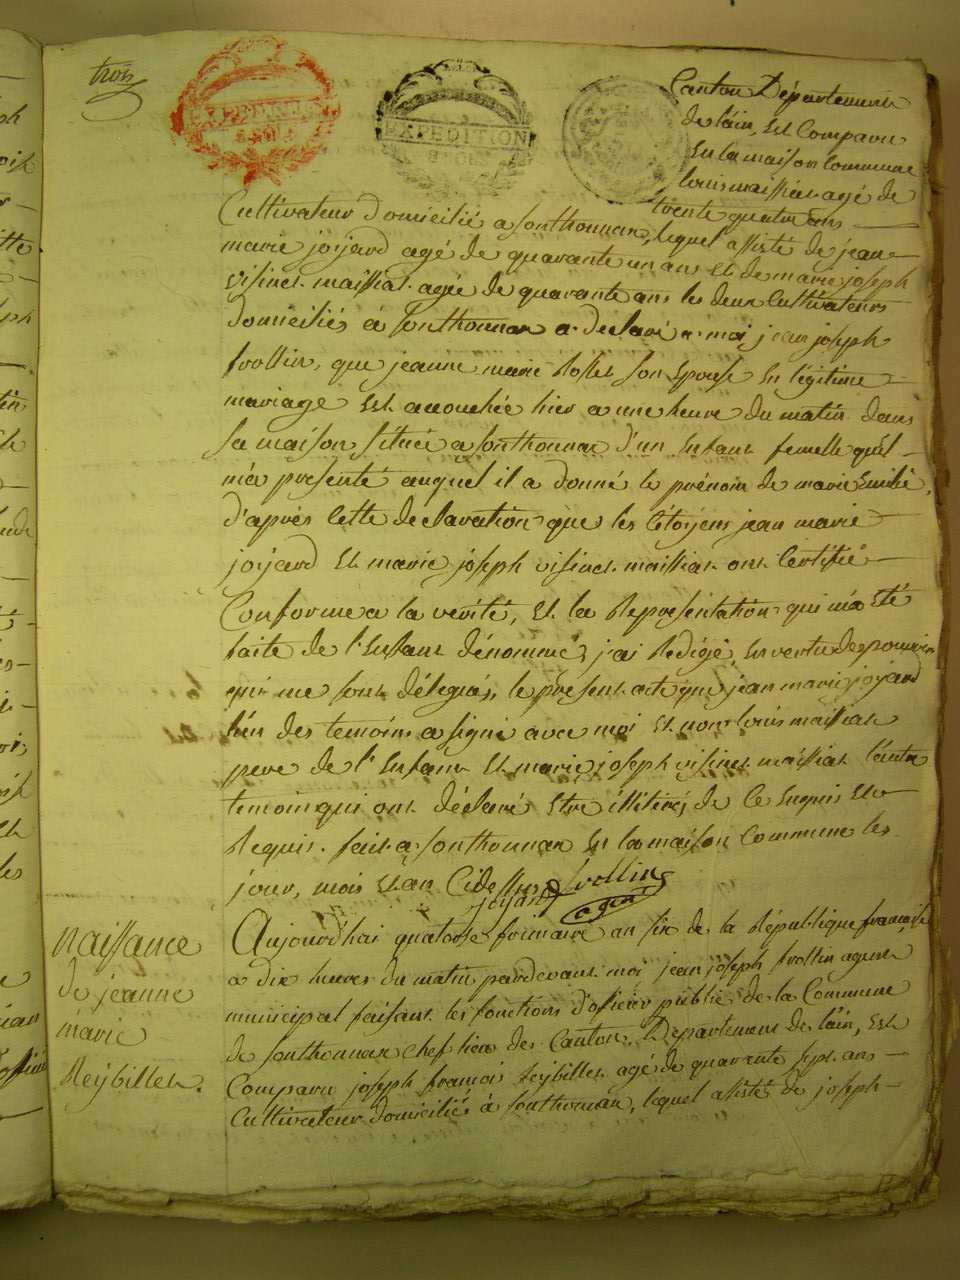 trois
EXPEDITION
EXPEDITION
Canton Département
de l'ain, Est Comparu
En la maison Commune
louis maissiat agé de
trente quatre ans
Cultivateur Domicilié a Sonthonnax, lequel assisté de jean
marie joyard agé de quarante un ans Et de marie joseph
visinet maissiat agée de quarante ans les deux Cultivateurs
Domiciliés a Sonthonnax a déclaré a moi, jean joseph
trollin, que jeanne marie Rosset son Epouse En légitime
mariage Est accouchée hier a une heure du matin dans
sa maison située a Sonthonnax d'un Enfant femelle qu'el
m'a présenté auquel il a donné le prénom de marie Emilie,
d'après Cette déclaration que les Citoyens jean marie
joyard Et marie joseph visinet maissiat ont Certifié
Conforme a la verité, Et la Représentation qui m'a Eté
faite de l'Enfant dénommé, j'ai Rédigé, En vertu des pouvoirs
qui me sont délégués, le présent acte que jean marie joyard
l'un des temoins a signé avec moi Et non louis maissiat
pere de l'Enfant Et marie joseph visinet maissiat l'autre
temoin qui ont déclaré Etre illitirés de Ce Enquis Et
Requis. fait a Sonthonnax En la maison Commune les
jour, mois Et an Cidessus
joyard trollin
agent
naissance
de jeanne
marie
Reybillet.
Aujourd'hui quatorze frimaire an six de la République française
a dix heures du matin pardevant moi jean joseph trollin agent
municipal faisant les fonctions d'oficier public de la Commune
de Sonthonnax Chef lieu de Canton, Département de l'ain, Est
Comparu joseph françois Reybillet agé de quarante sept ans
Cultivateur domicilié à Sonthonnax, lequel assisté de joseph